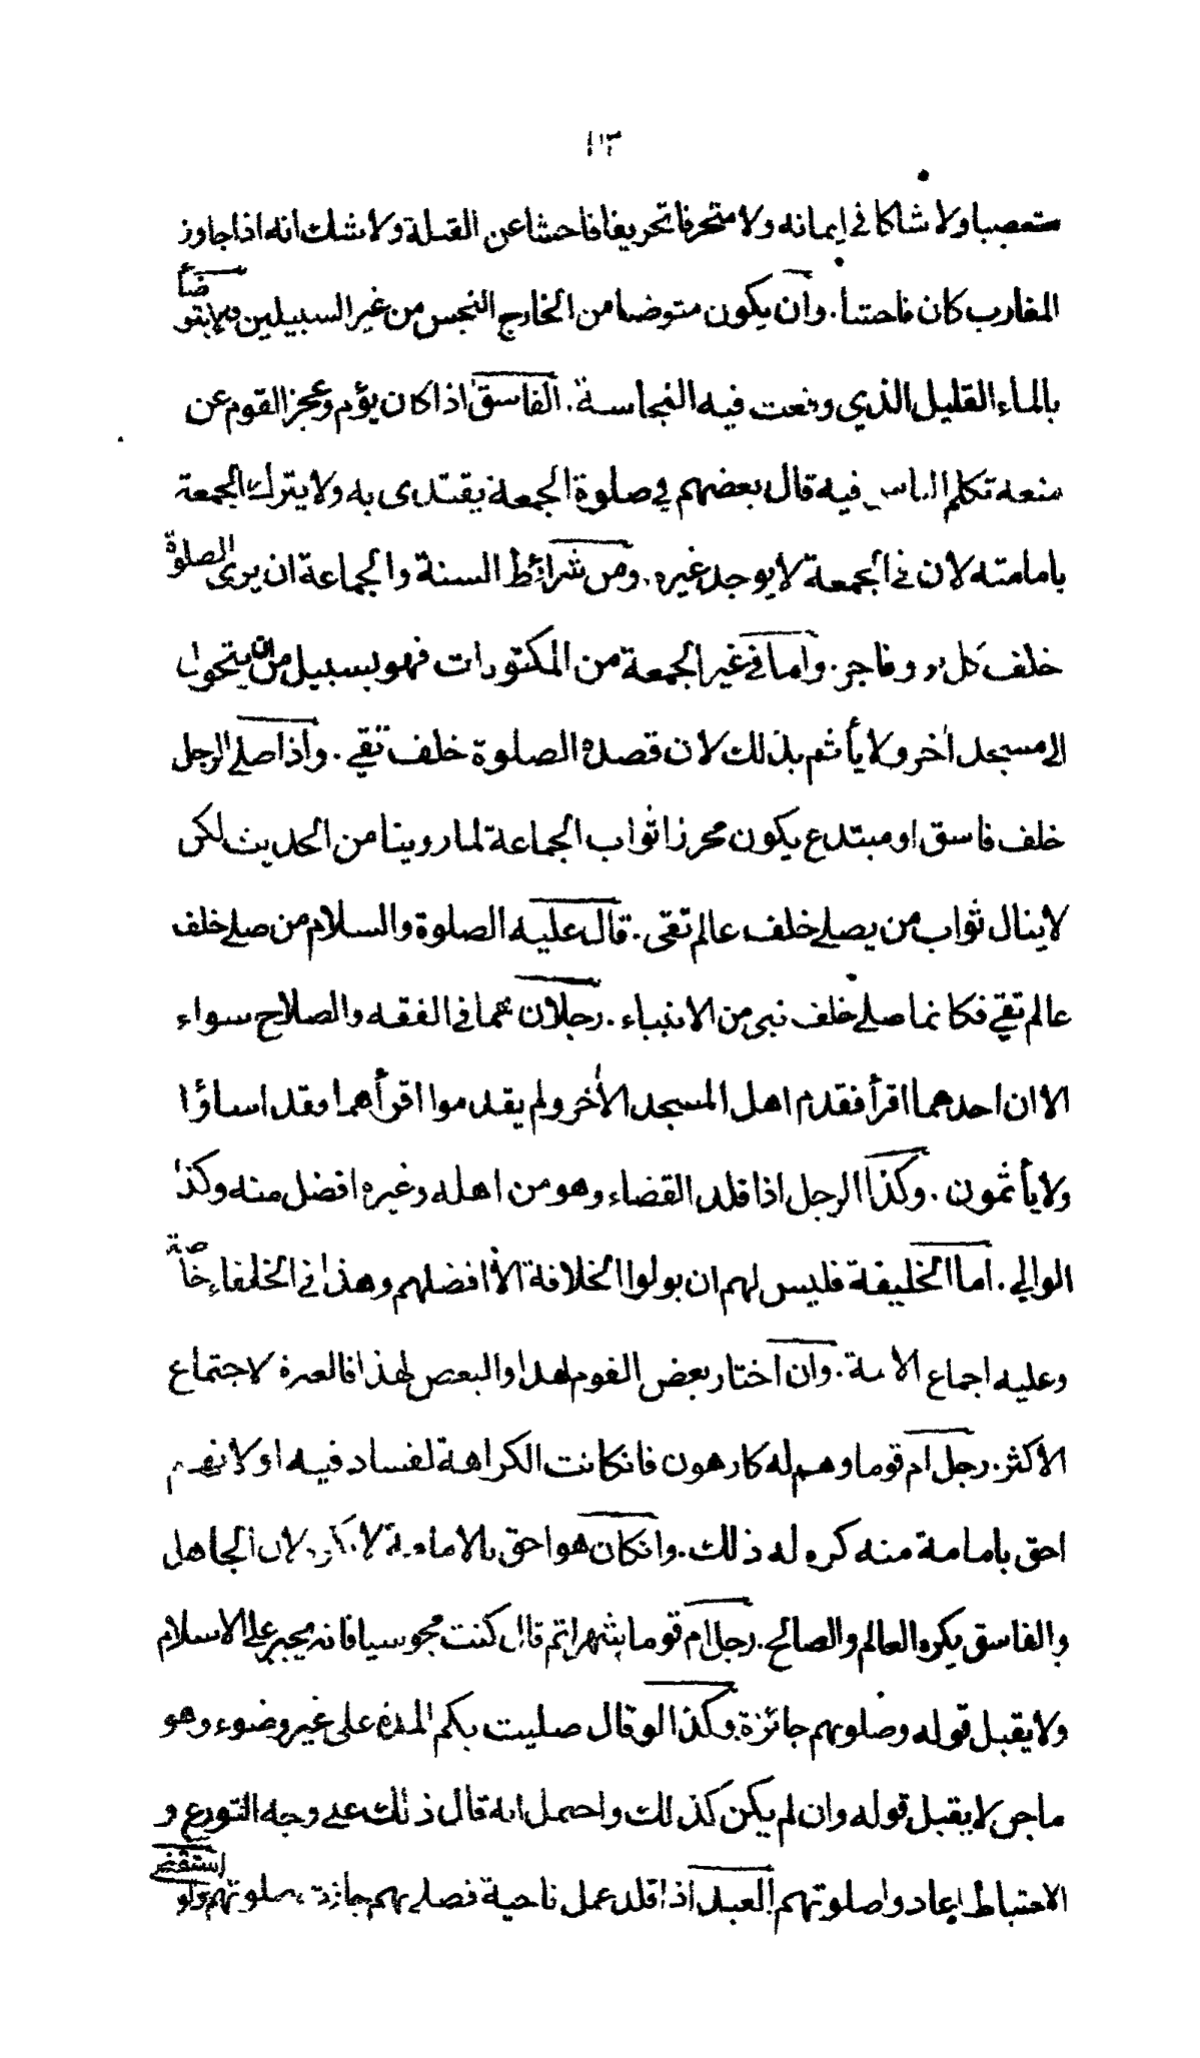 ١١٣
متعصبا ولا شاكا في ايمانه ولا متحرفا تحريفا فاحشا عن القبلة ولا شك انه اذا جاوز
المغارب كان فاحشا. وان يكون متوضئا من الخارج النجس من غير السبيلين ولا يتوضأ
بالماء القليل الذي وقعت فيه النجاسة. الفاسق اذا كان يؤم وعجز القوم عن
منعه تكلم الناس فيه قال بعضهم في صلوة الجمعة يقتدى به ولا يترك الجمعة
بامامته لان في الجمعة لا يوجد غيره. ومن شرائط السنة والجماعة ان يرى الصلوة
خلف كل بر وفاجر. واما في غير الجمعة من المكتوبات فهو بسبيل من ان يتحول
الى مسجد اخر ولا يأثم بذلك لان قصده الصلوة خلف تقي. واذا صلى الرجل
خلف فاسق او مبتدع يكون محرزا ثواب الجماعة لما روينا من الحديث لكن
لا ينال ثواب من يصلى خلف عالم تقى. قال عليه الصلوة والسلام من صلى خلف
عالم تقي فكانما صلى خلف نبي من الانبياء. رجلان هما في الفقه والصلاح سواء
الا ان احدهما اقرأ فقدم اهل المسجد الأخر ولم يقدموا اقرأهما فقد اساؤا
ولا يأثمون. وكذا الرجل اذا قلد القضاء وهو من اهله وغيره افضل منه وكذا
الوالي. اما الخليفة فليس لهم ان يولوا الخلافة الا افضلهم وهذا في الخلفاء خاصة
وعليه اجماع الامة. وان اختار بعض القوم لهذا والبعض لهذا فالعبرة لاجتماع
الاكثر. رجل ام قوما وهم له كارهون فانكانت الكراهة لفساد فيه او لانهم
احق بامامة منه كره له ذلك. وانكان هو احق بالامامة لا يكره لان الجاهل
والفاسق يكره العالم والصالح. رجل ام قوما شهرا ثم قال كنت مجوسيا فانه يجبر على الاسلام
ولا يقبل قوله وصلوتهم جائزة. وكذا لو قال صليت بكم المدة على غير وضوء وهو
ماجن لا يقبل قوله وان لم يكن كذلك واحتمل انه قال ذلك على وجه التورع و
الاحتياط اعادوا صلوتهم. العبد اذا قلد عمل ناحية فصلى بهم جازت صلوتهم ولو استقضى